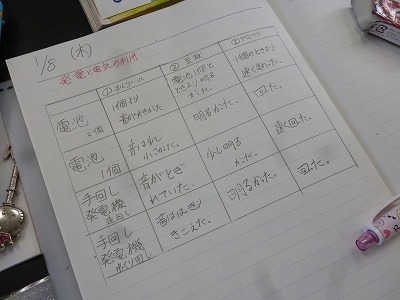 1/8 (木)
発電と電気の利用
①オルゴール ②豆球 ③プロペラ
電池 2個
1個より音が大きかった
電池1個のときより明るかった。
1個のときより速くまわった。
電池 1個
音は少し小さかった。
明るかった。
回った。
手回し発電機
音がとぎれていた。
少し明るかった。
速く回った。
手回し発電機
音ははっきりきこえた。
明るかった。
回った。